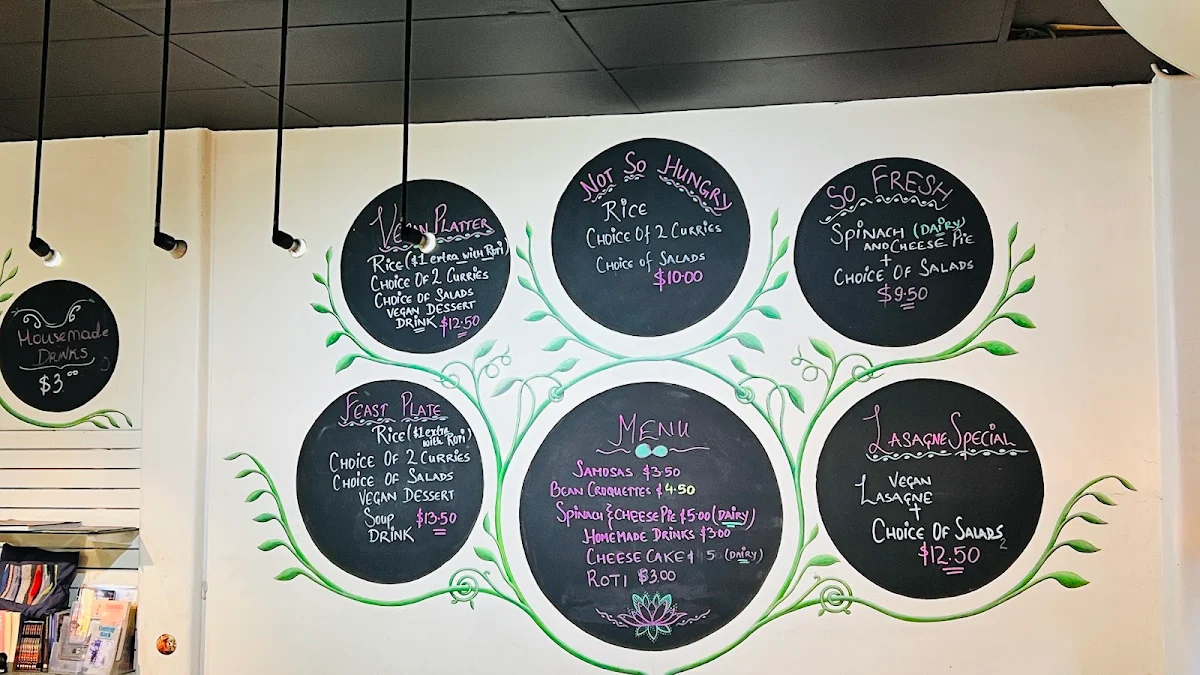 Housemade
Drinks
$3.00
Vegan Platter
Rice ($1 extra with Roti)
Choice Of 2 Curries
Choice Of Salads
Vegan Dessert
Drink $12.50
Not So Hungry
Rice
Choice Of 2 Curries
Choice of Salads
$10.00
So Fresh
Spinach (Dairy)
and Cheese Pie
+
Choice Of Salads
$9.50
Feast Plate
Rice ($1 extra
with Roti)
Choice Of 2 Curries
Choice Of Salads
Vegan Dessert
Soup $13.50
Drink
Menu
Samosas $3.50
Bean Croquettes $4.50
Spinach & Cheese Pie $5.00 (Dairy)
Homemade Drinks $3.00
Cheese Cake $ 5 (Dairy)
Roti $3.00
Lasagne Special
Vegan
Lasagne
+
Choice Of Salads
$12.50